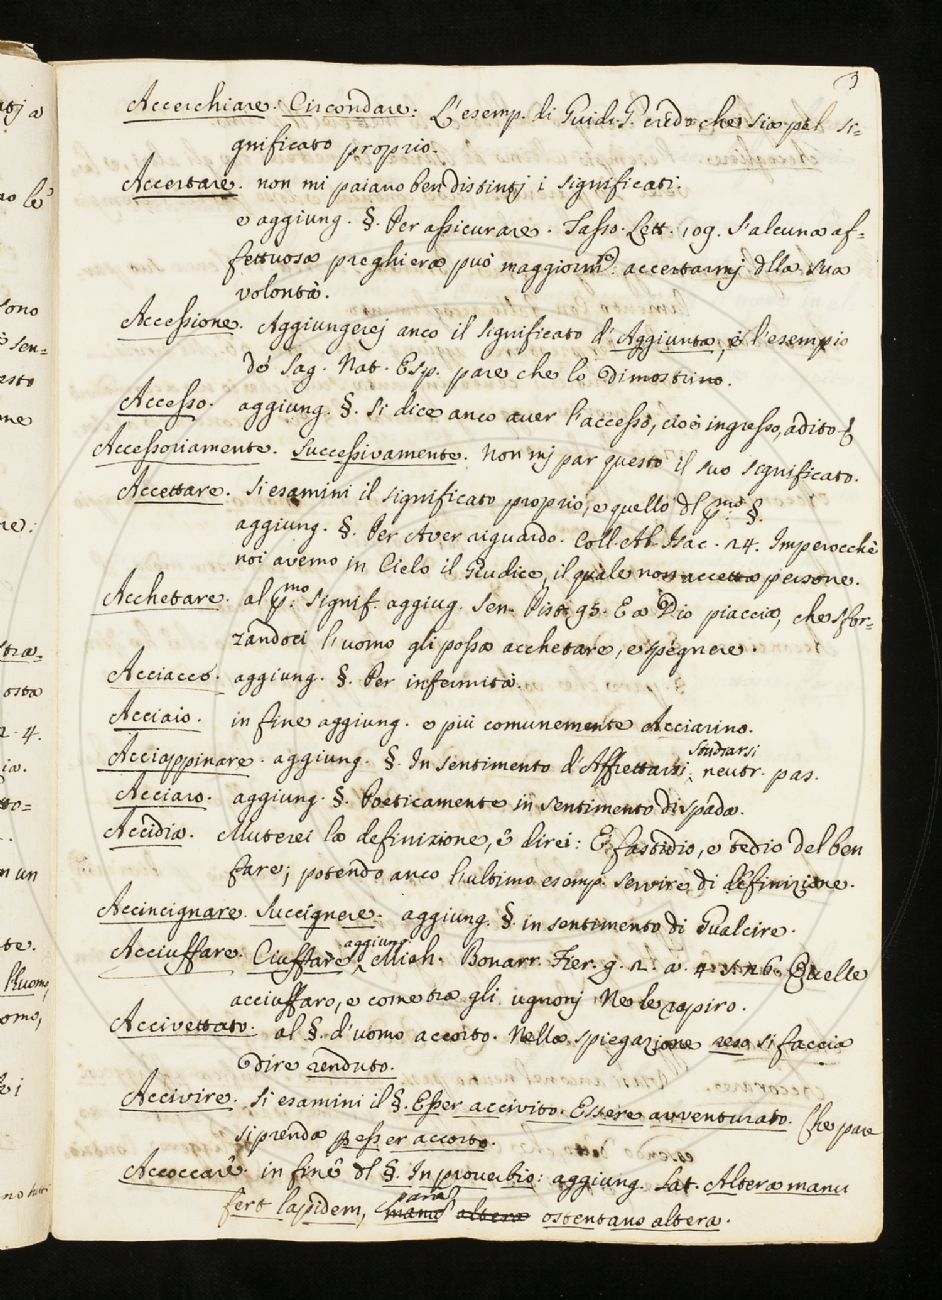 3
Accerchiare. Circondare: L'esemp. di Guid. G. credo che sia pel si-
gnificato proprio.
Accertare. non mi paiano ben distintj i significati.
e aggiung. §. Per assicurare. Tasso. Lett. 109. S'alcuna af-
fettuosa preghiera può maggiorm.e accertarmj dlla sua
volontà.
Accessione. Aggiungerej anco il significato d'Aggiunta, e l'esempio
de' Sag. Nat. Esp. pare che lo dimostrino.
Accesso. aggiung. §. Si dice anco aver l'accesso, cioè ingresso, adito
Accessoriamente. Successivamente. Non mj par questo il suo significato.
Accettare. Si esamini il significato proprio, e quello dl p.mo §.
aggiung. §. Per Aver riguardo. Coll. Ab. Isac. 24. Imperocchè
noi avemo in Cielo il Giudice, il quale non accetta persone.
Acchetare. al p.mo signif. aggiug. Sen. Pist. 95. E a Dio piaccia, che sfor-
zandoci l'uomo gli possa acchetare, e spégnere.
Acciacco. aggiung. §. Per infermità.
Acciaio. in fine aggiung. e più comunemente Acciarino.
Acciappinare. aggiung. §. In sentimento d'Affrettarsi, Studiarsi neutr. pas.
Acciaro. aggiung. §. Poeticamente in sentimento di spada.
Accidia. Muterei la definizione, e direi: È fastidio, e tedio del ben
fare; potendo anco l'ultimo esemp. servire di definizione.
Accincignare. Succignere. aggiung. §. in sentimento di Gualcire.
Acciuffare. Ciuffare aggiung. Mich. Bonarr. Fier. g. 2. a. 4. s. 26. Quelle
acciuffaro, e come tra gli ugnonj Ne le rapiro.
Accivettato. al §. d'uomo accorto. Nella spiegazione reso si faccia
dire renduto.
Accivire. Si esamini il §. Esser accivito. Essere avventurato. Che pare
si prenda p esser accorto.
Accoccare. in fine dl §. In proverbio: aggiung. Lat. Altera manu
fert lapidem, panem ostentans altera.